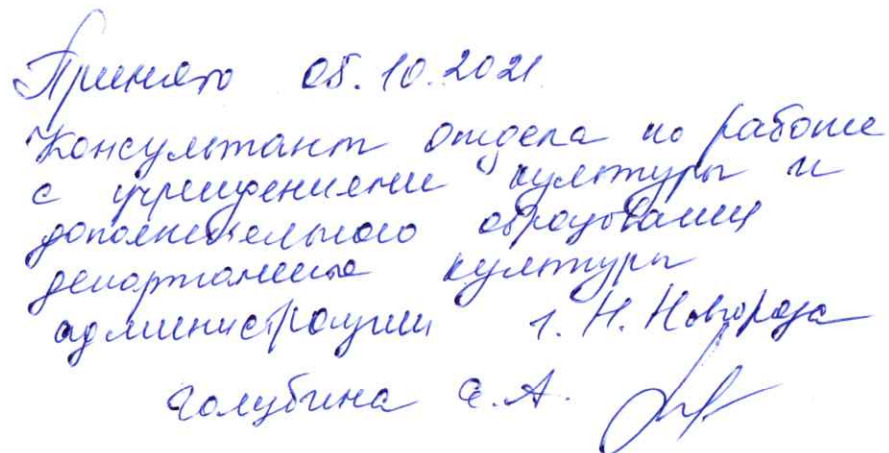 Принято 05.10.2021
Консультант отдела по работе
с учреждениями культуры и
дополнительного образования
департамента культуры
администрации г. Н. Новгорода
Голубина Е.А.